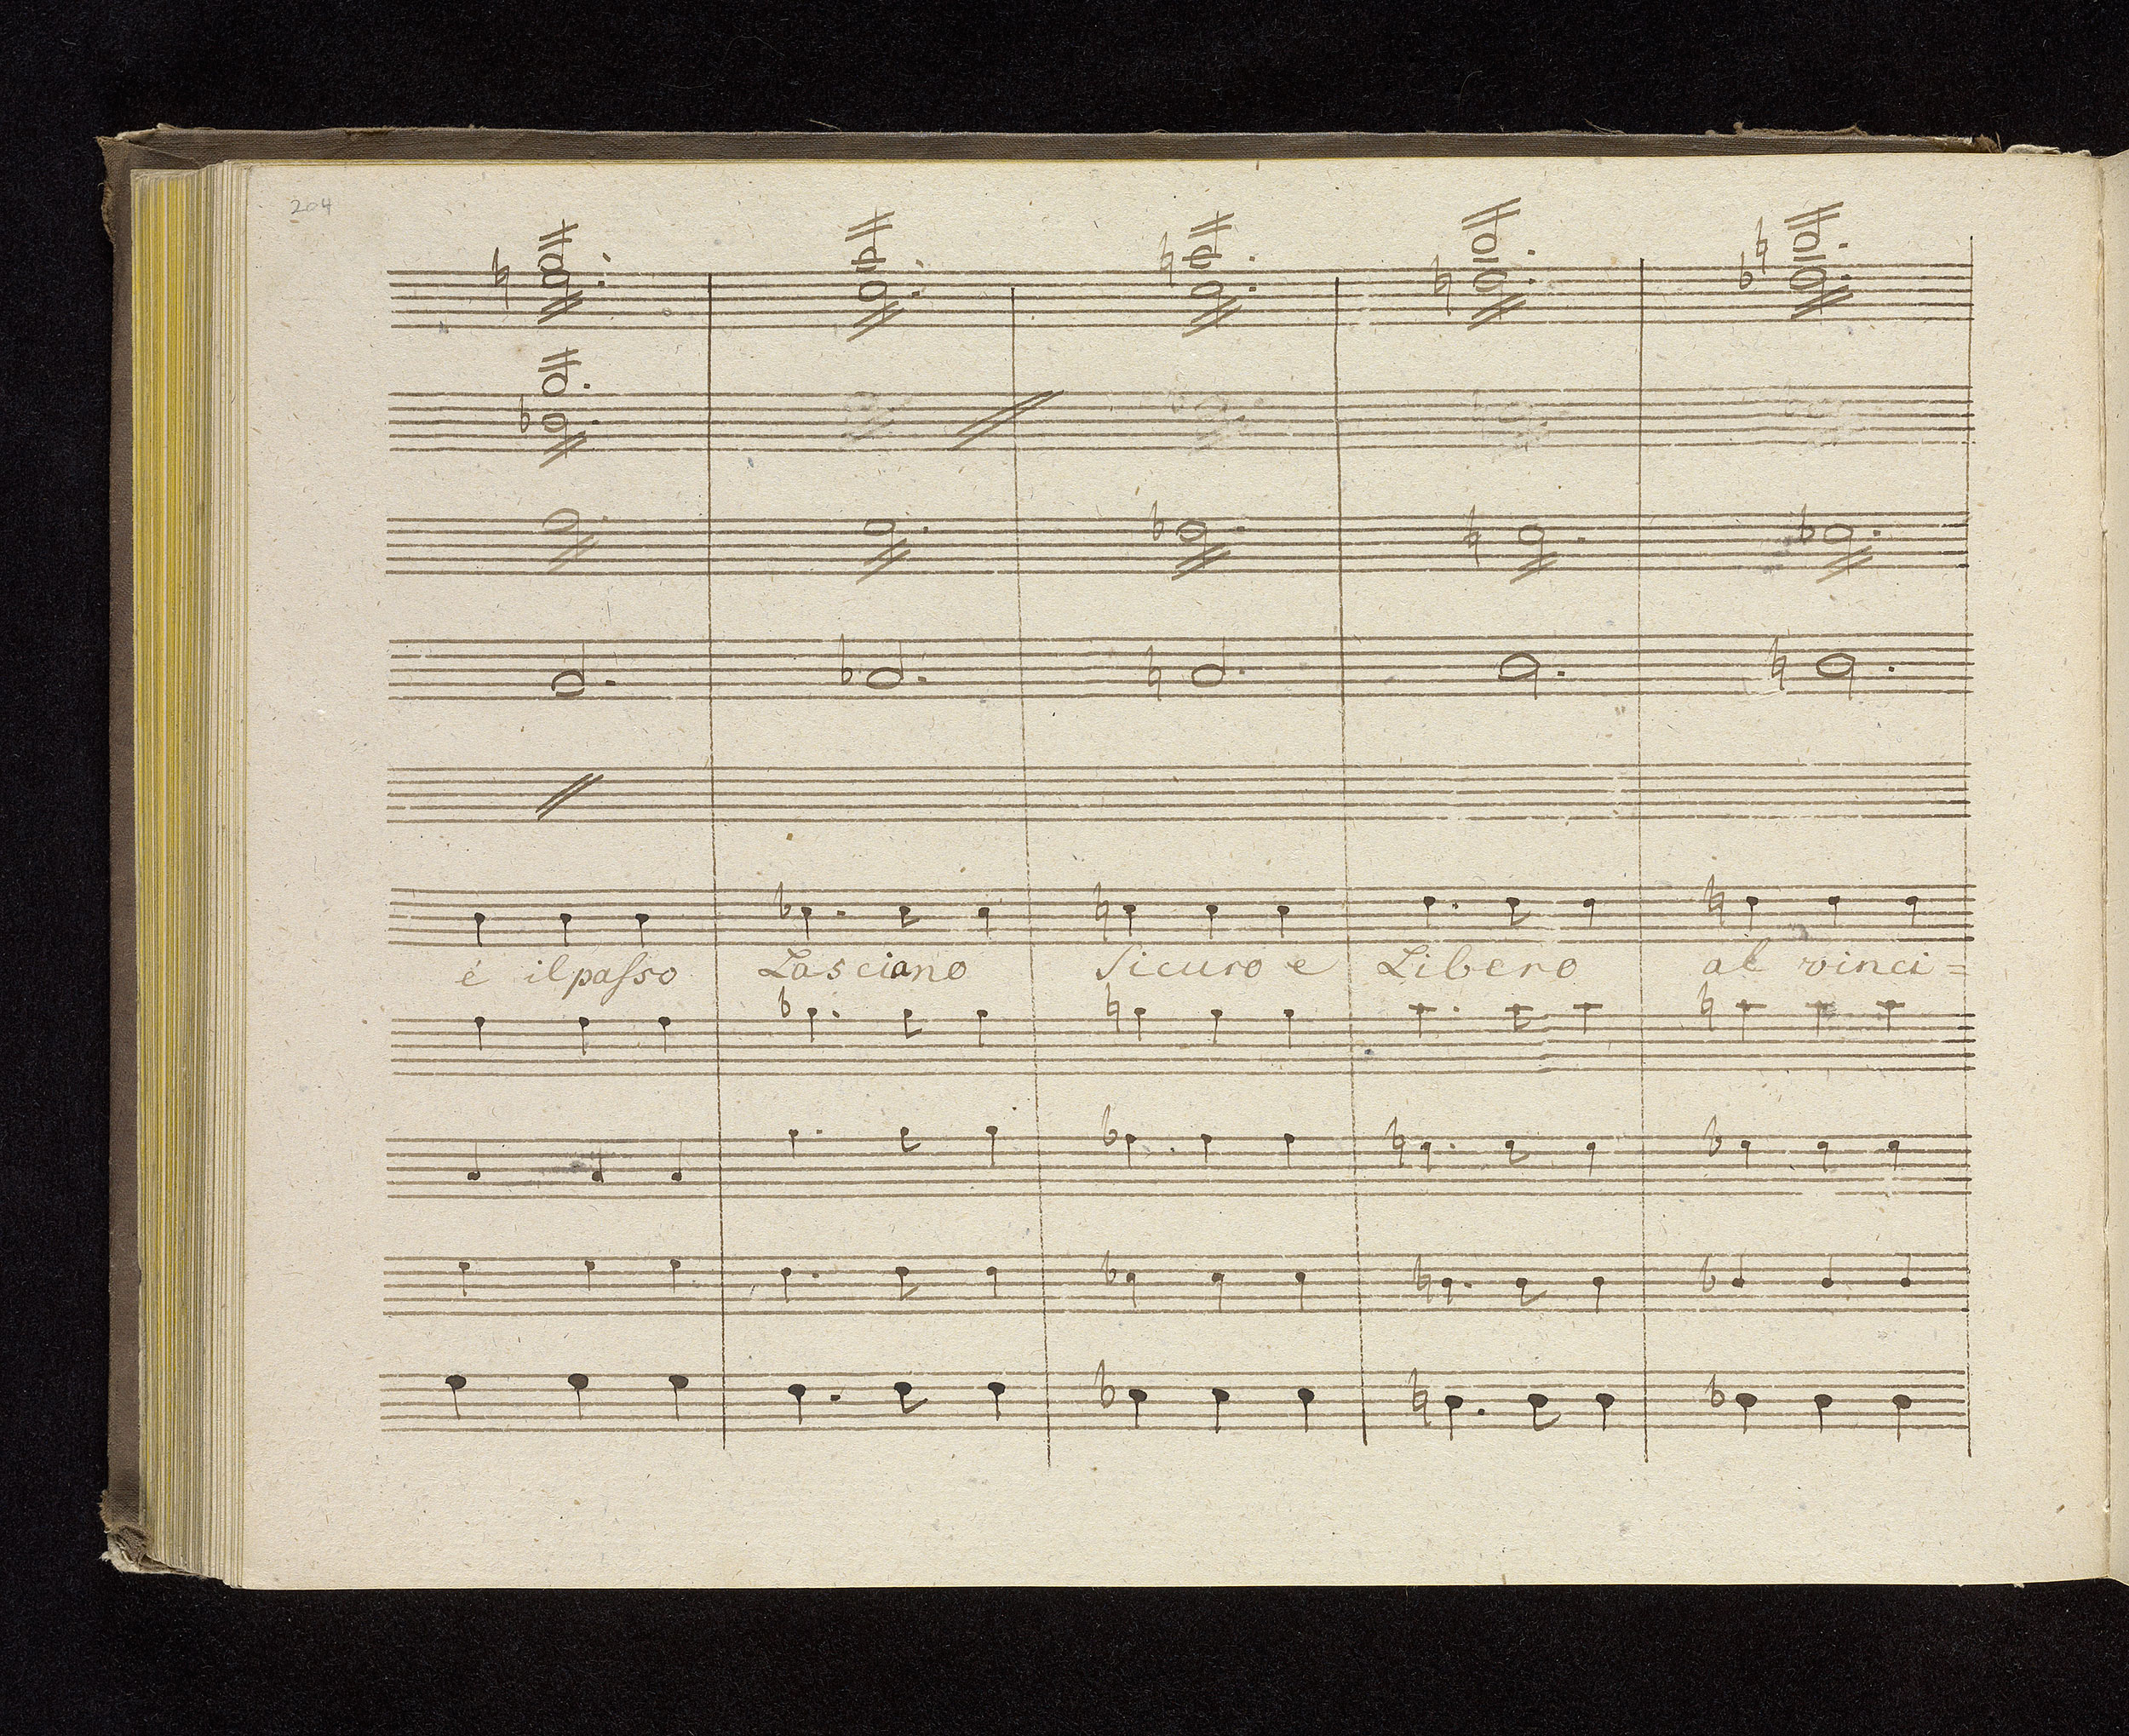 204
è il paſso Lasciano Sicuro e Libero al vinci=